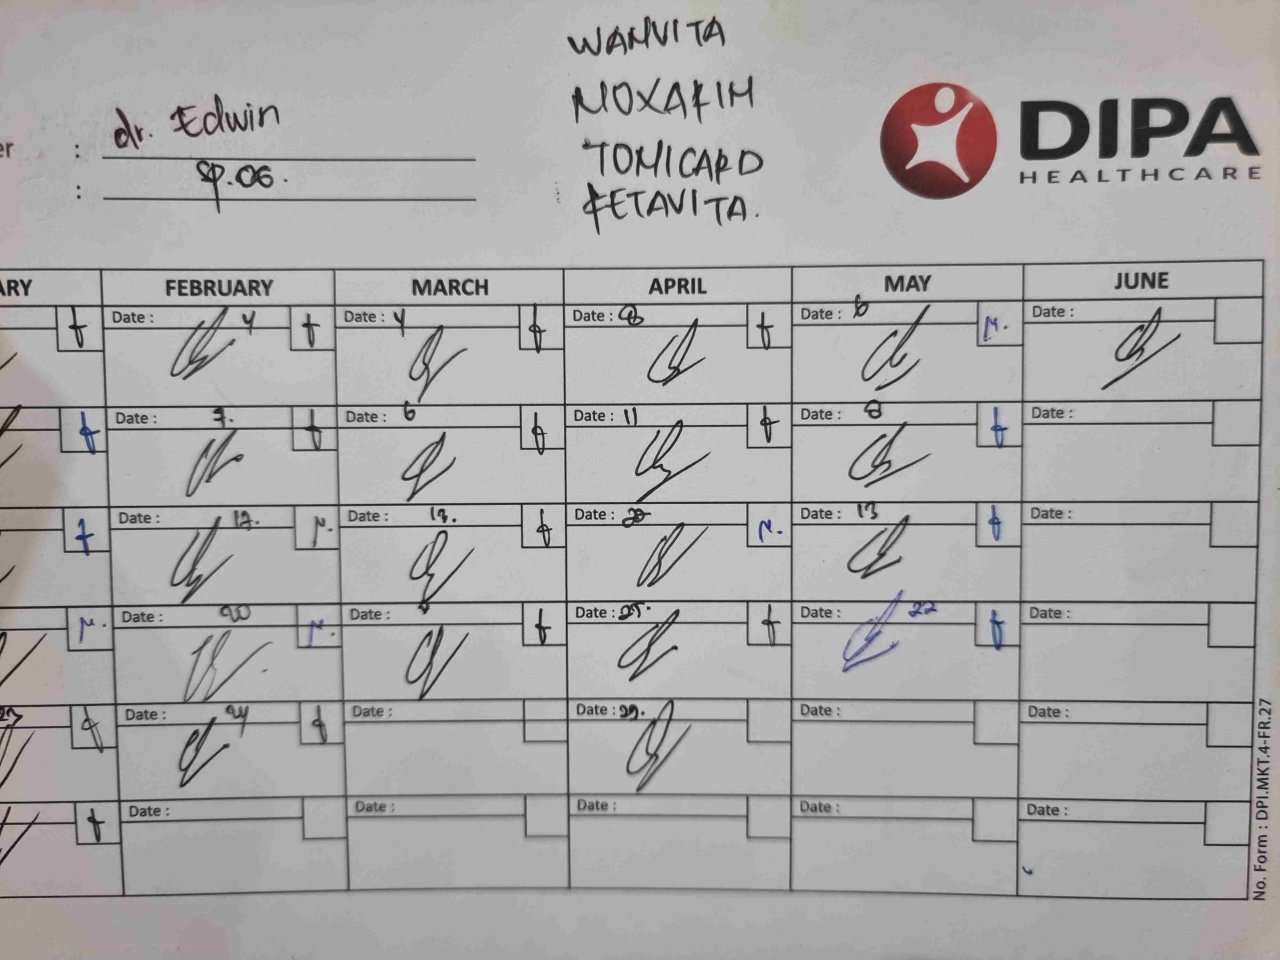 WANVITA
MOXAFIM
TOMICARD
KETAVITA.
er : dr. Edwin
: Sp.OG.
DIPA
HEALTHCARE
ARY FEBRUARY MARCH APRIL MAY JUNE
Date : 4 Date : 4 Date : 8 Date : 6 Date :
Date : 7. Date : 6 Date : 11 Date : 8 Date :
Date : 12. Date : 13. Date : 20 Date : 13 Date :
Date : 20 Date : Date : 25. Date : 22 Date :
23 Date : 24 Date : Date : 29. Date : Date :
Date : Date : Date : Date : Date :
No. Form : DPI.MKT.4-FR.27